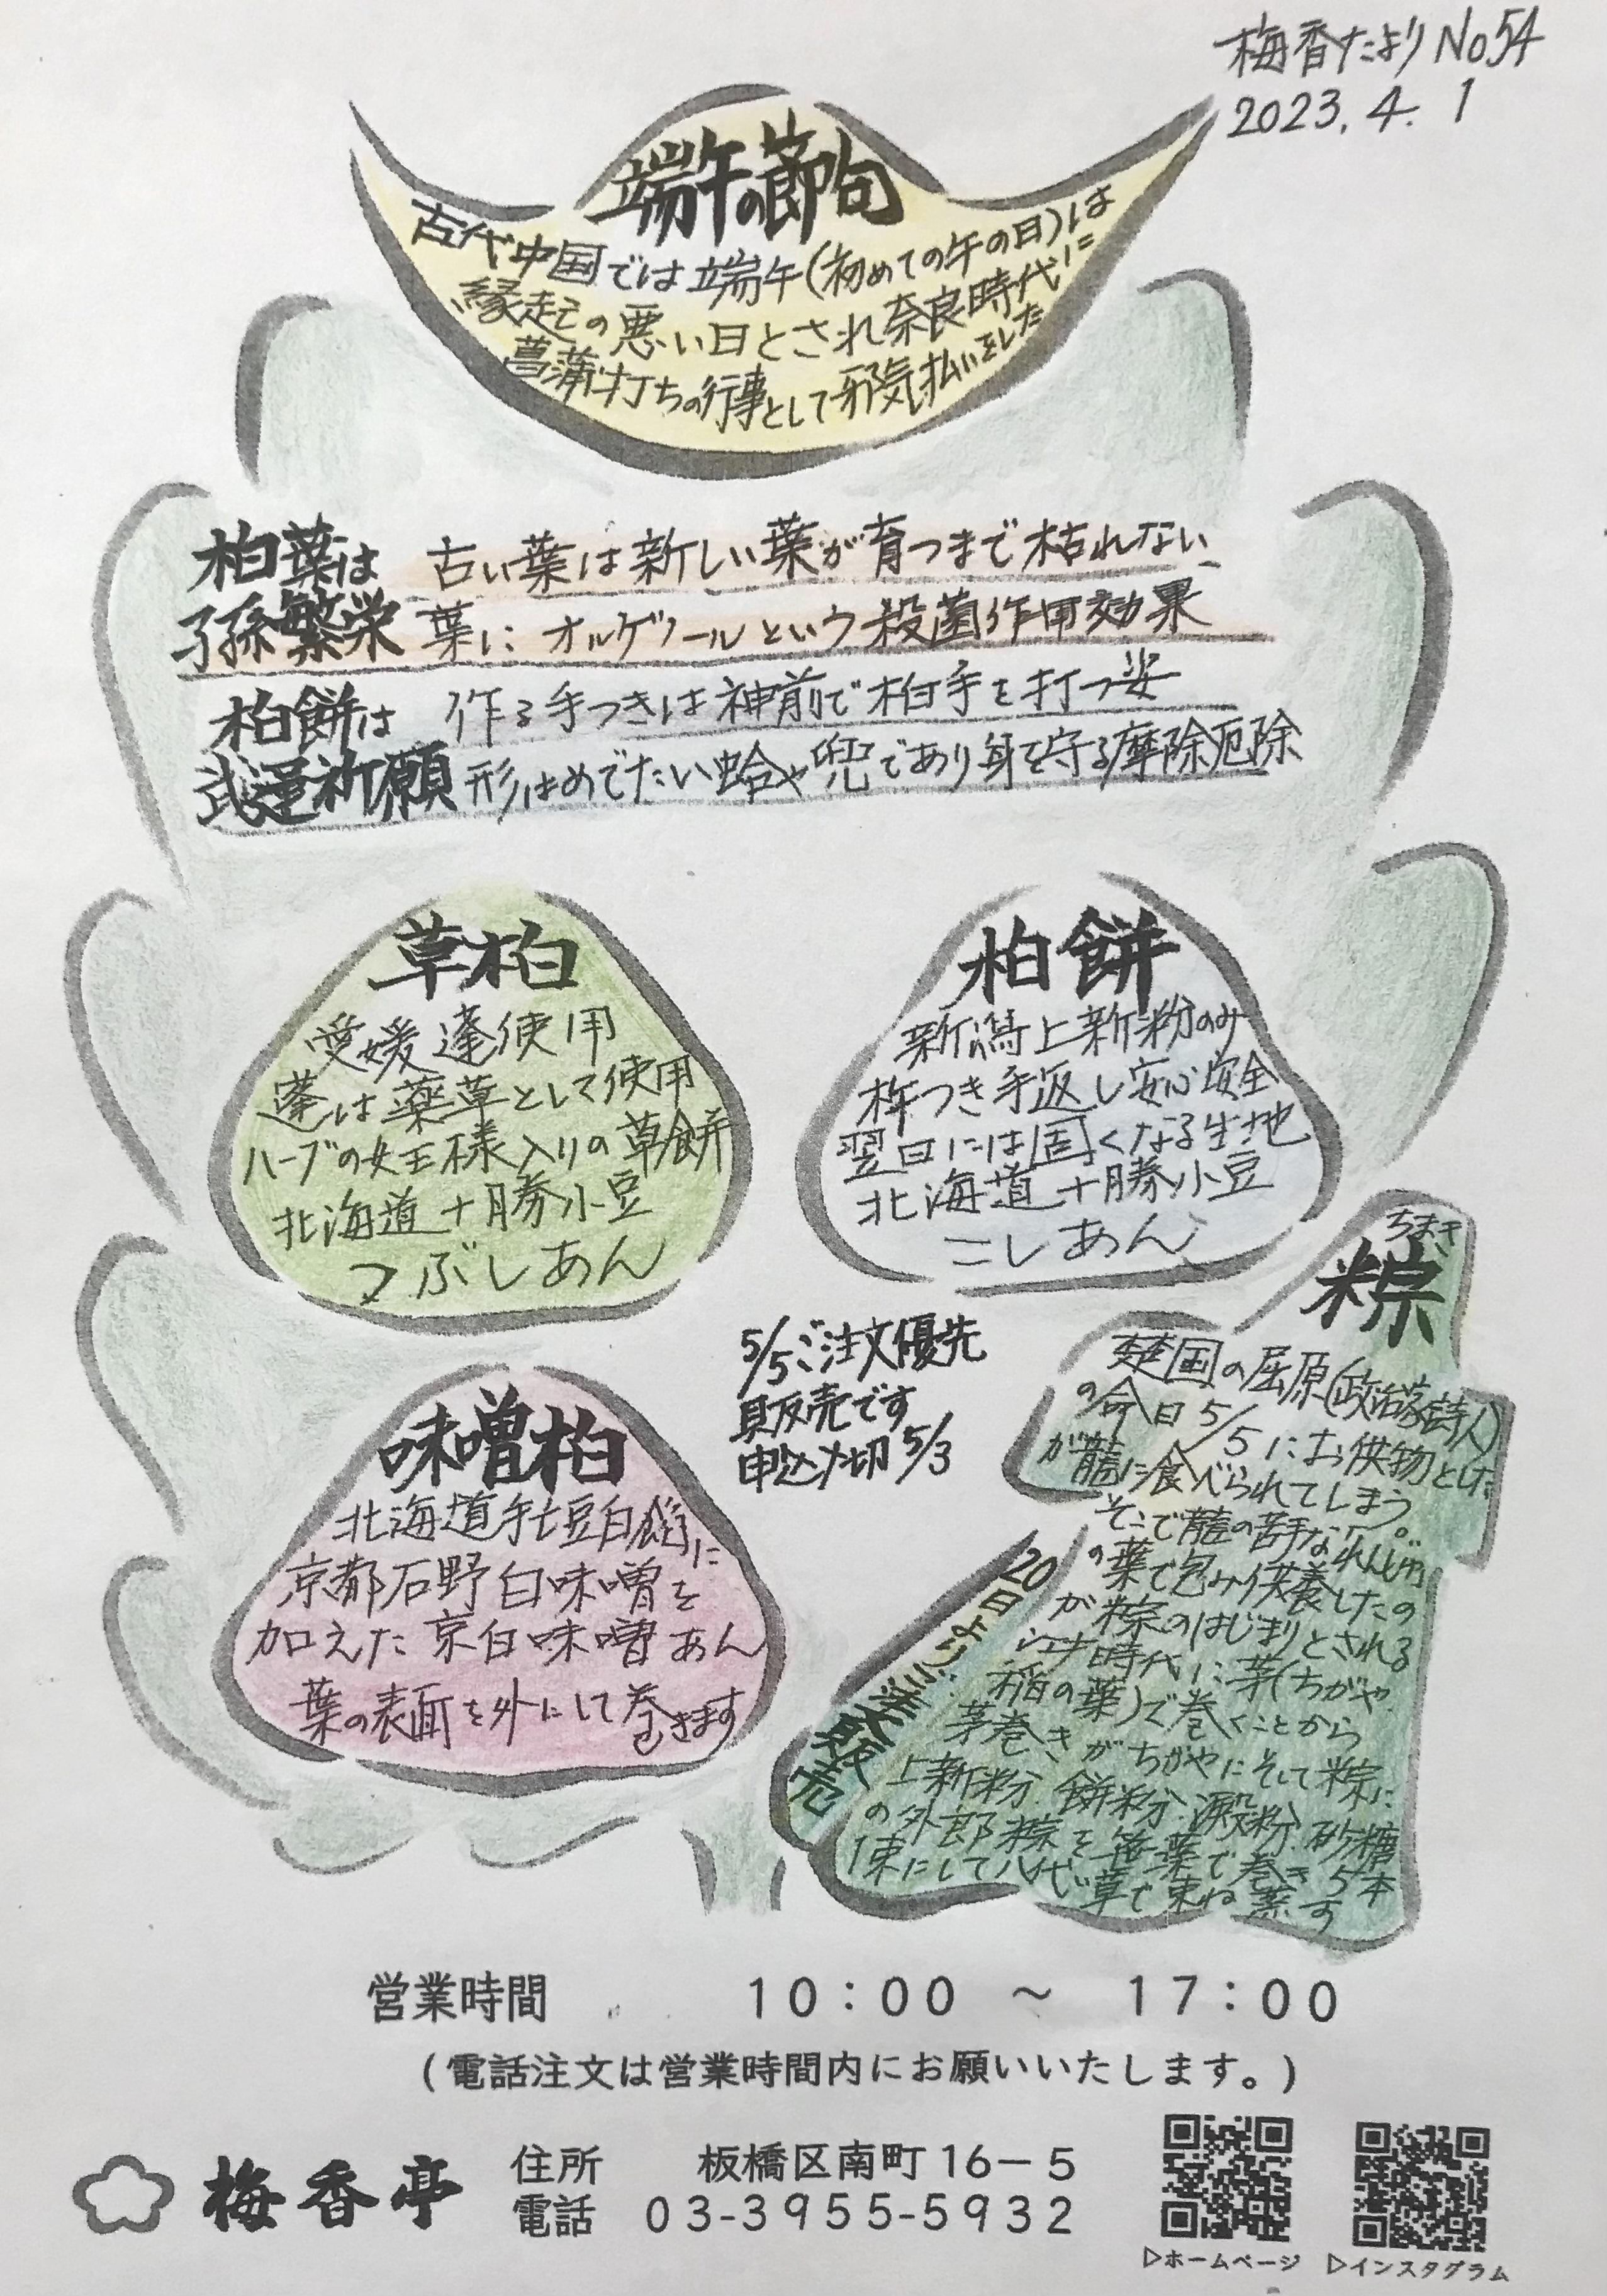 梅香たより No.54
2023.4.1
端午の節句
古代中国では端午(初めての午の日)は
縁起の悪い日とされ奈良時代に
菖蒲打ちの行事として邪気払いをした
柏葉は 古い葉は新しい葉が育つまで枯れない
子孫繁栄 葉に オルゲノールという殺菌作用効果
柏餅は 作る手つきは神前で柏手を打つ姿
武運祈願 形はめでたい蛤や兜であり身を守る摩除厄除
草柏
愛媛蓬使用
蓬は薬草として使用
ハーブの女王様入りの草餅
北海道十勝小豆
つぶしあん
柏餅
新潟上新粉のみ
杵つき手返し安心安全
翌日には固くなる生地
北海道十勝小豆
こしあん
5/5ご注文優先
販売です
申込〆切 5/3
味噌柏
北海道手亡豆白餡に
京都石野白味噌を
加えた京白味噌あん
葉の表面を外にして巻きます
ちまき
粽
楚国の屈原(政治家詩人)
の命日5/5にお供物とした
が龍に食べられてしまう。
そこで龍の苦手なれんじゅ
の葉で包み供養したの
が粽のはじまりとされる
江戸時代に茅(ちがや
稲の葉)で巻くことから
茅巻きがちがやにそして粽に
上新粉.餅粉.澱粉.砂糖
の外郎粽を笹葉で巻き5本
1束にして八代草で束ね蒸す
20日よりご注文販売
営業時間 10:00 ～ 17:00
(電話注文は営業時間内にお願いいたします。)
梅香亭
住所 板橋区南町16－5
電話 03-3955-5932
▷ホームページ
▷インスタグラム